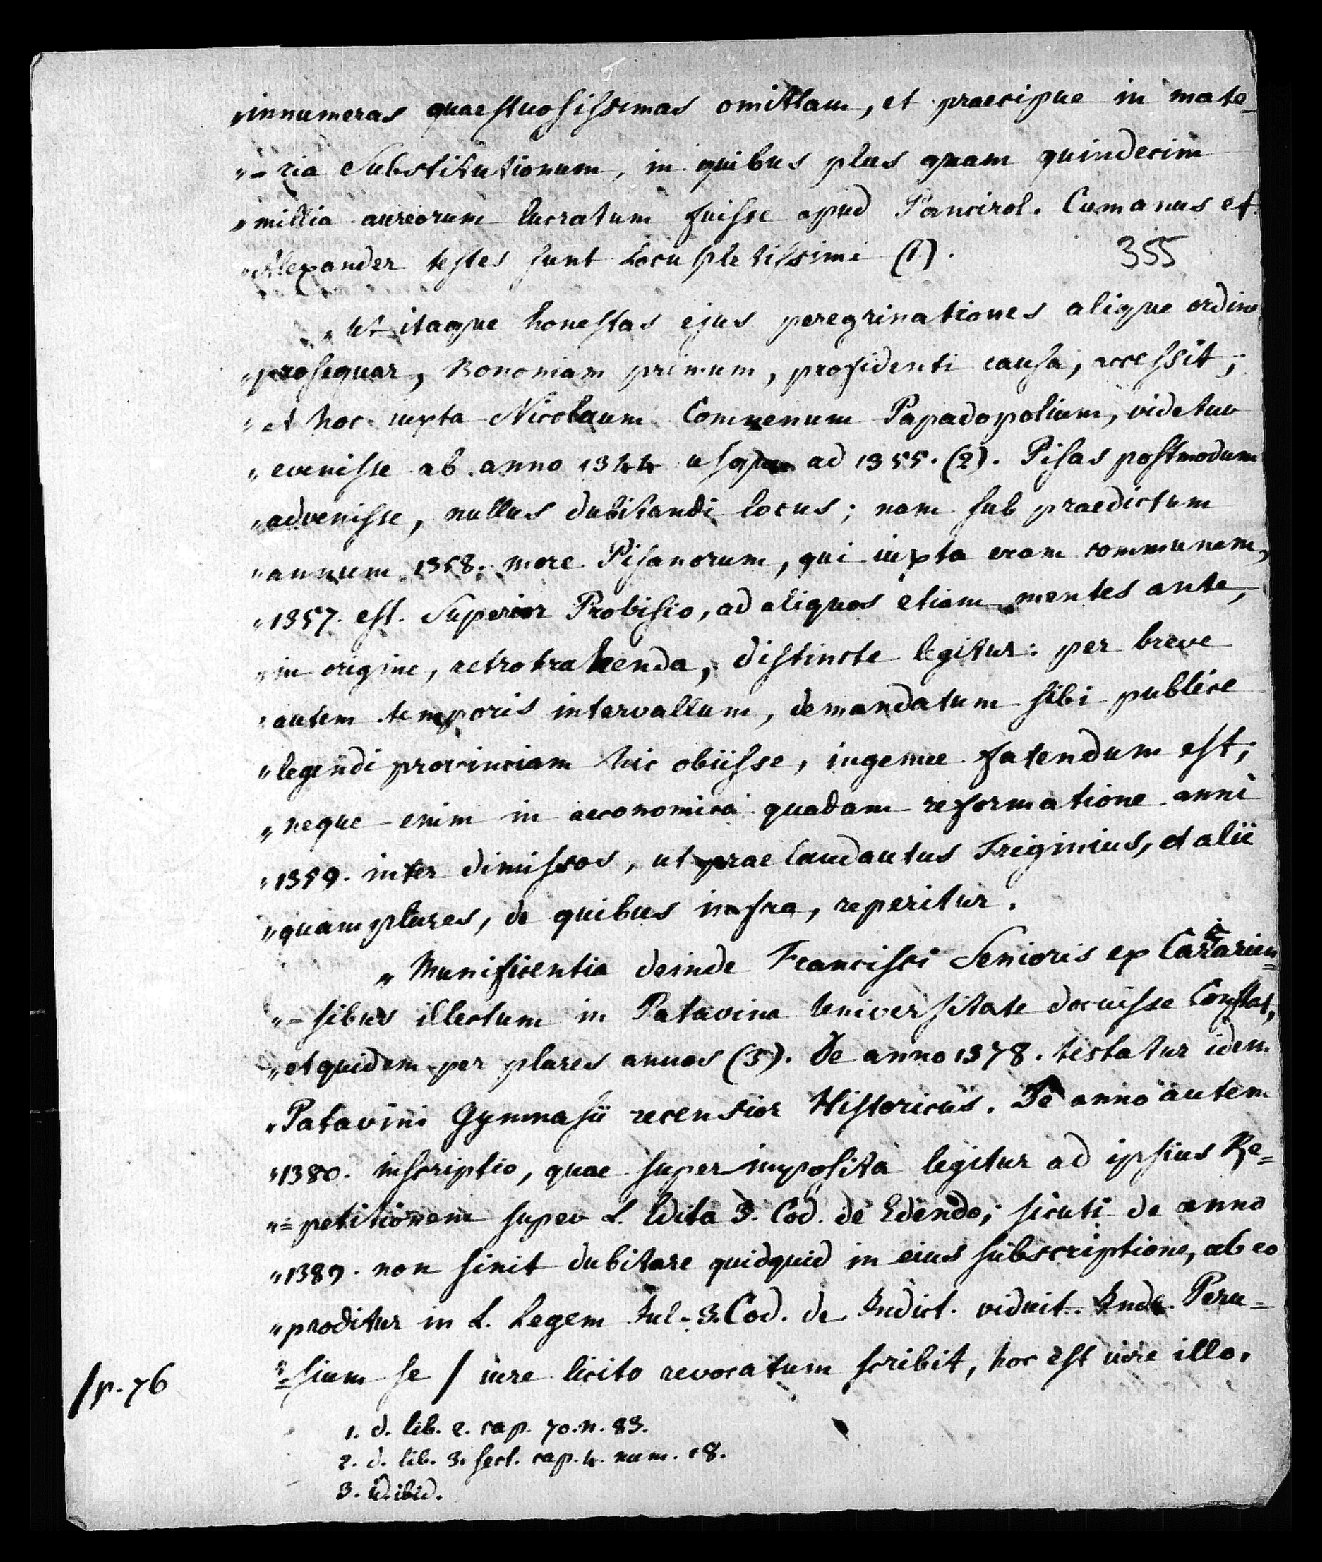 „innumeras quaestuosissimas omittam, et praecipue in mate-
„-ria Substitutionum, in quibus plus quam quindecim
„millia aureorum lucratum fuisse apud Pancirol. Cumanus et
„Alexander testes sunt locupletissimi (1).
355
„Ut itaque honestas ejus peregrinationes alique ordine
„prosequar, Bononiam primum, profidenti causa, accessit;
„et hoc iuxta Nicolaum Comnenum Papadopolium, videtur
„evenisse ab anno 1344 usque ad 1355. (2). Pisas postmodum
„advenisse, nullus dubitandi locus; nam sub praedictum
„annum 1358. more Pisanorum, qui iuxta eram communem,
„1357. est. Superior Probisio, ad aliquos etiam menses ante,
„in origine, retrotrahenda, distincte legitur: per breve
„autem temporis intervallum, demandatum sibi publice
„legendi provinciam hic obiisse, ingenue fatendum est;
„neque enim in aeconomica quadam reformatione anni
„1359. inter dimissos, ut praelaudautus Friginius, et alii
„quamplures, de quibus infra, reperitur.
„Munificentia deinde Francisci Senioris ex Carrarien=
„=sibus illectum in Patavina Universitate docuisse Constat,
„et quidem per plures annos (3). De anno 1378. testatur idem
„Patavini Gymnasii recensior Historicus. De anno autem
„1380. inscriptio, quae superimposita legitur ad ipsius Re=
„=petitionem super L. Edita 3. Cod. de Edendo; sicuti de anno
„1389. non sinit dubitare quidquid in eius subscriptione, ab eo
„proditur in L. Legem Jul. 3. Cod. de Indict. viduit. Inde Peru=
„=sium se / iure licito revocatum scribit, hoc est iure illo,
/p. 76
1. d. lib. 2. cap. 70. n. 83.
2. d. lib. 3. sect. cap. 4. num. 18.
3. id. ibid.